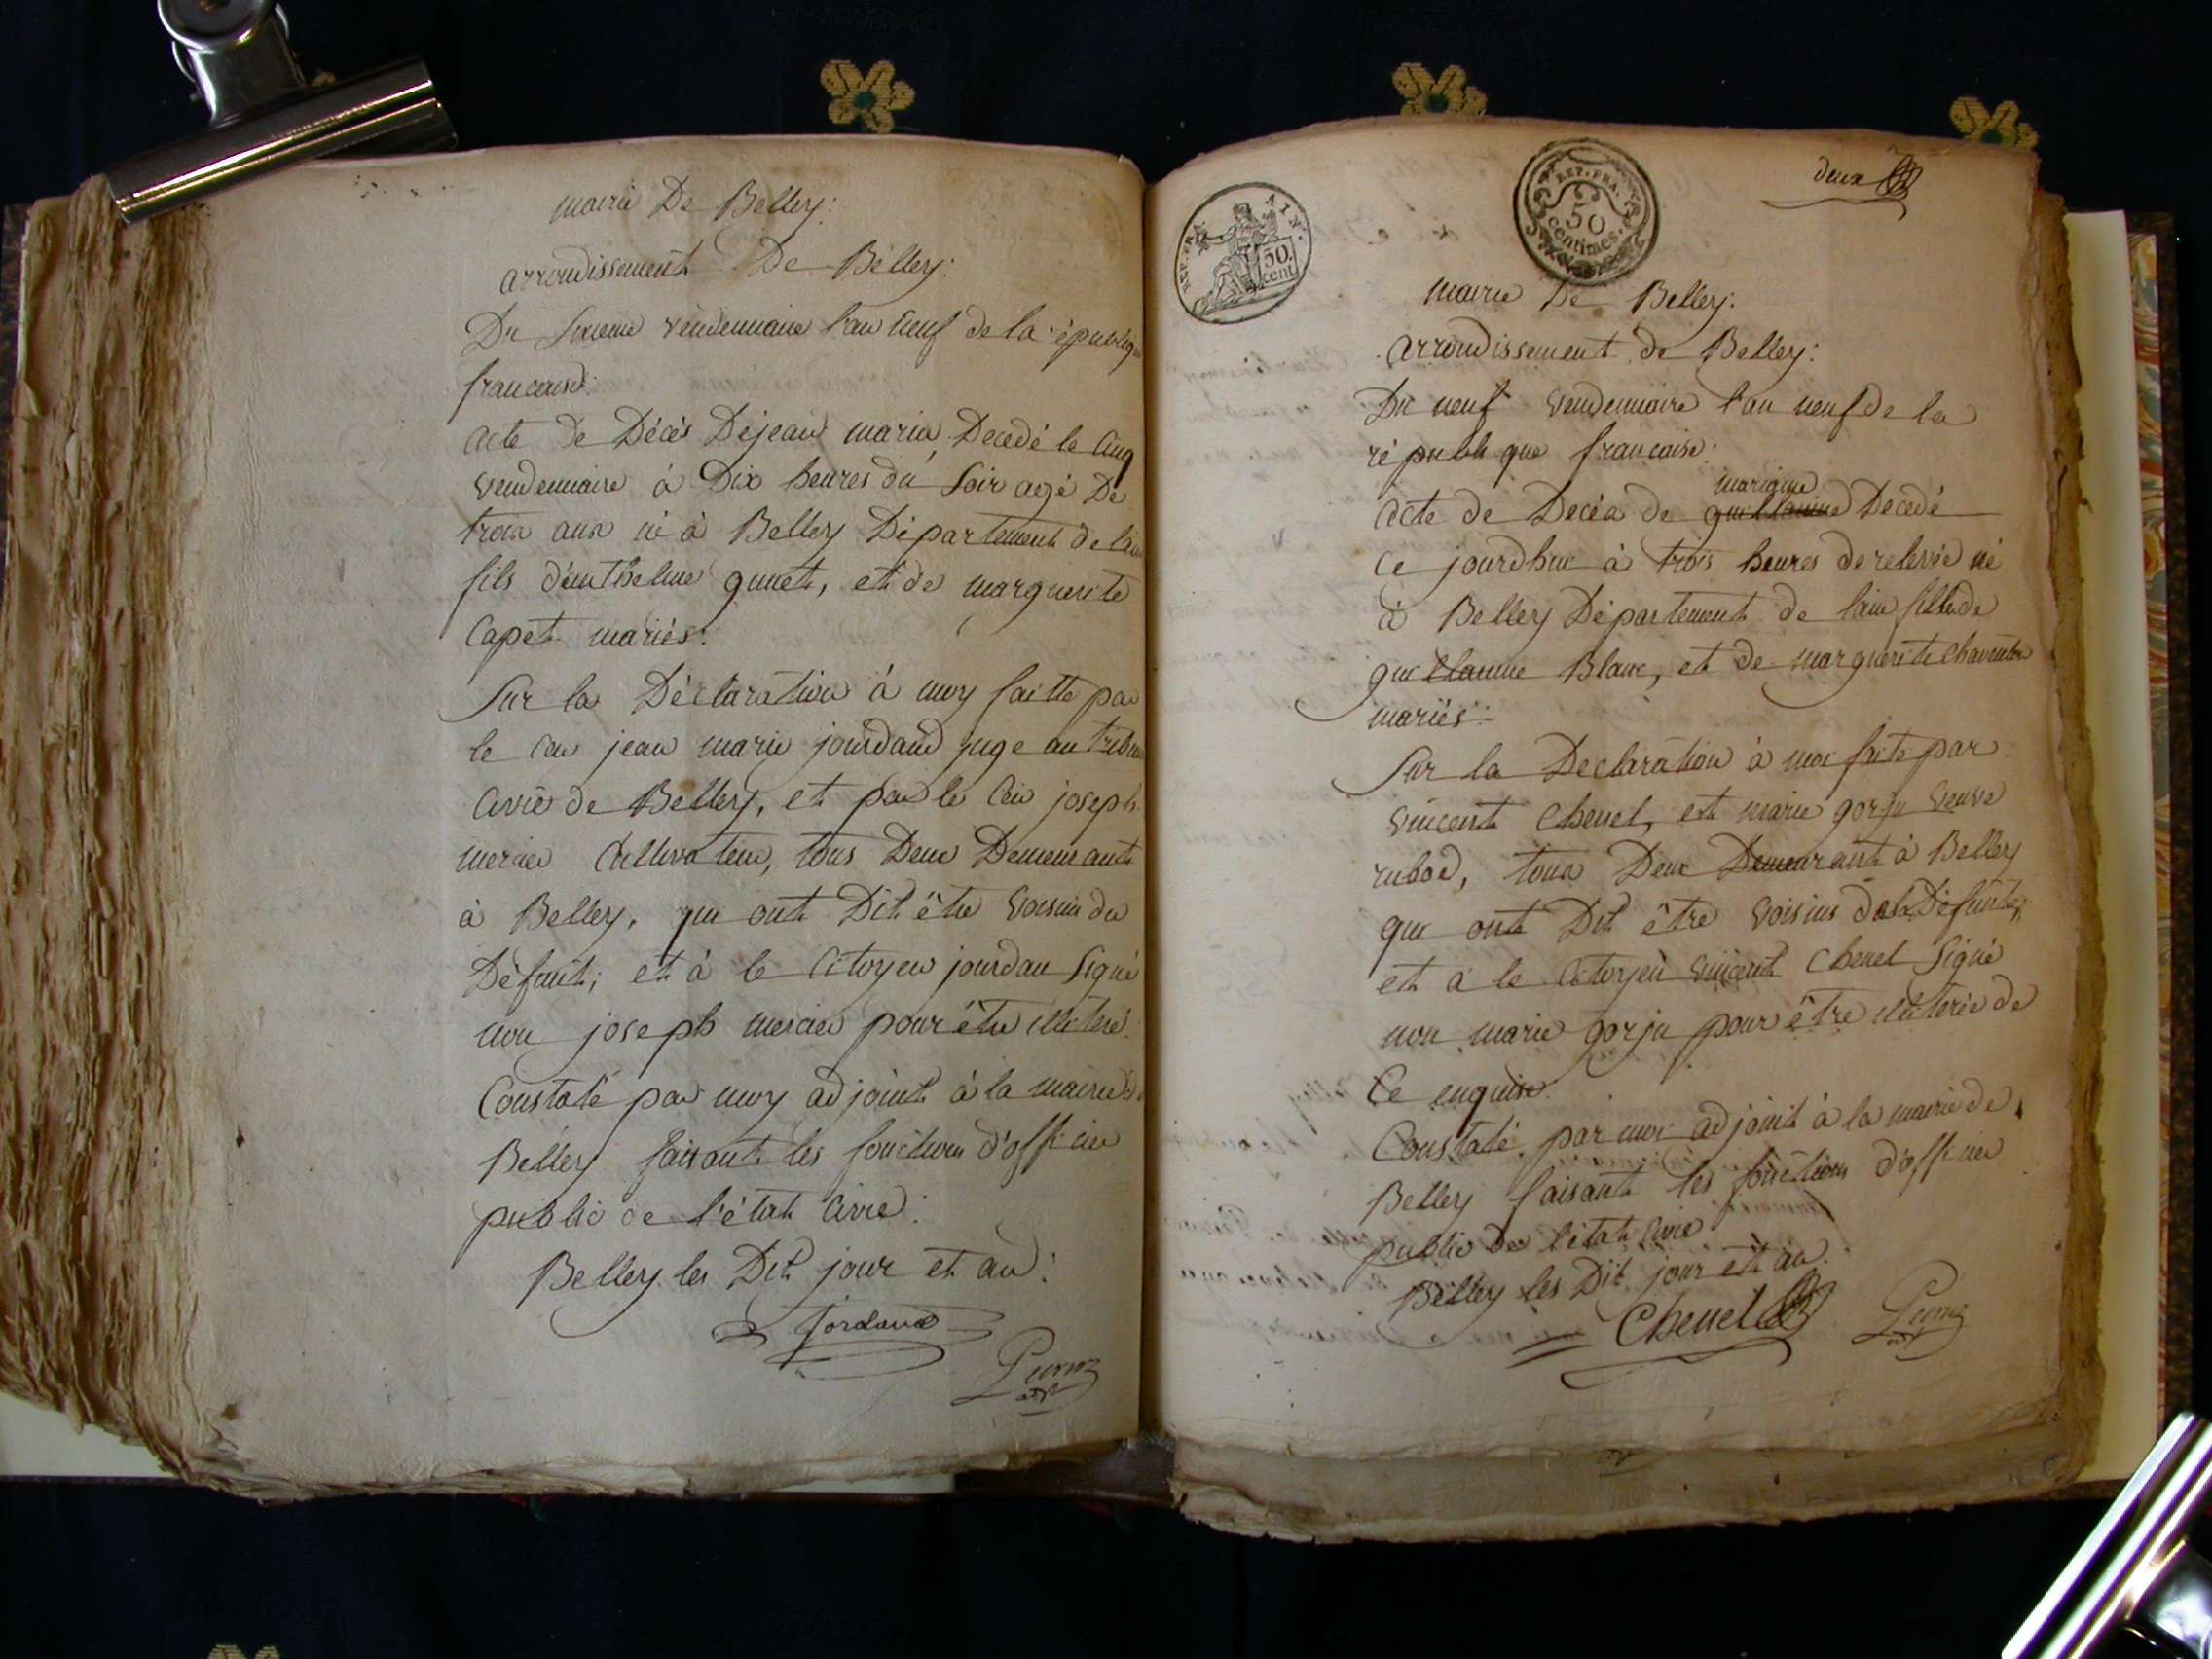 mairie De Belley:
arrondissement De Belley:
Du sixieme vendemiaire l'an neuf de la républiq
francaise:
acte de Décès Dejean marie, Decedé le cinq
vendemiaire à Dix heures du soir agé De
trois ans né à Belley Département de lain
fils d'anthelme gunet, et de marguerite
Capet mariés:
Sur la Déclaration à moy faitte par
le cen jean marie jourdand juge au tribu
civil de Belley, et par le cen joseph
mercier cultivateur, tous Deux Demeurants
à Belley, qui ont Dit être voisin du
Défunt; et à le citoyen jourdan signé
non joseph mercier pour être illiteré.
Constaté par moy adjoint à la mairie d
Belley faisant les fonctions d'officier
public de l'état civil:
Belley les Dit jour et an:
Jordand
REP. FRA. AIN.
50.
cent
REP. FRA.
50
centimes.
deux
mairie De Belley:
arrondissement de Belley:
Du neuf vendemiaire l'an neuf de la
républi que francaise:
marigue
acte de Decéa de guillaume Decedé
ce jourdhui à trois heures de relevée né
à Belley Département de lain fille de
guillaume Blanc, et de marguerite
mariés:
Sur la Declaration à moi faite par
vincent Chenel, et marie gorju veuve
rubod, tous Deux Demeurant à Belley
qui ont Dit être voisins de la Défunte,
et à le citoyen vincent Chenel signé
non marie gorju pour être illiterée de
Ce enquise.
Constaté par moi adjoint à la mairie de
Belley faisant les fonctions d'officier
public de l'état civil
Belley les Dit jour et an:
Chenel